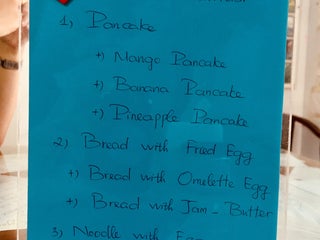 1) Pancake
+) Mango Pancake
+) Banana Pancake
+) Pineapple Pancake
2) Bread with Fried Egg
+) Bread with Omelette Egg
+) Bread with Jam - Butter
3) Noodle with Egg